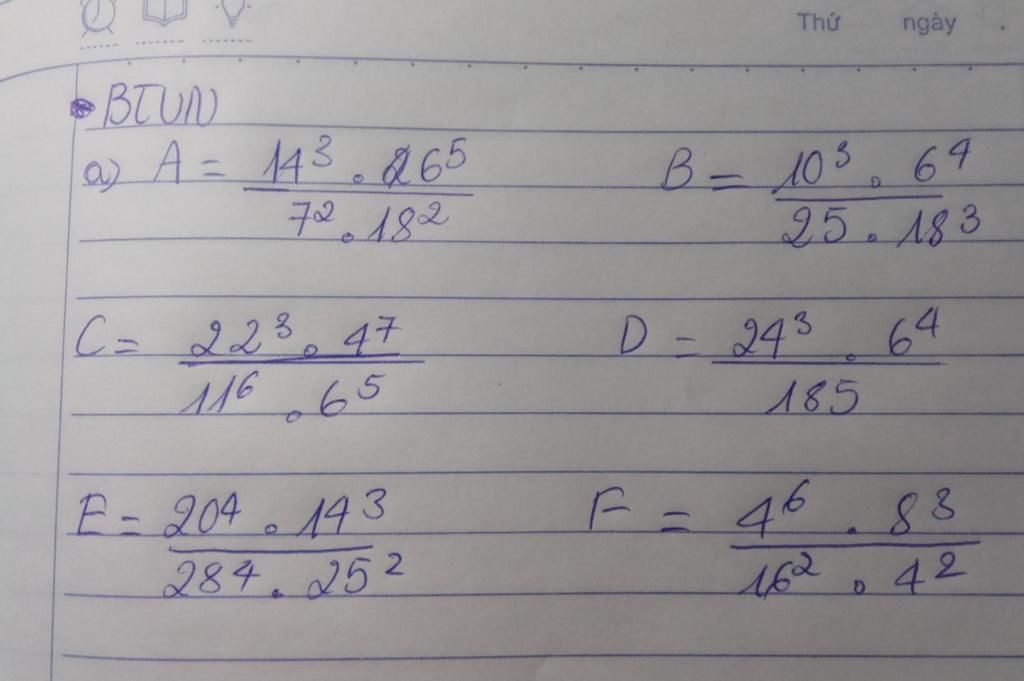 Thứ ngày .
BTVN
a) A = 14³ . 26⁵ / 7² . 18² B = 10³ . 6⁴ / 25 . 18³
C = 22³ . 4⁷ / 11⁶ . 6⁵ D = 24³ . 6⁴ / 185
E = 20⁴ . 14³ / 28⁴ . 25² F = 4⁶ . 8³ / 16² . 4²